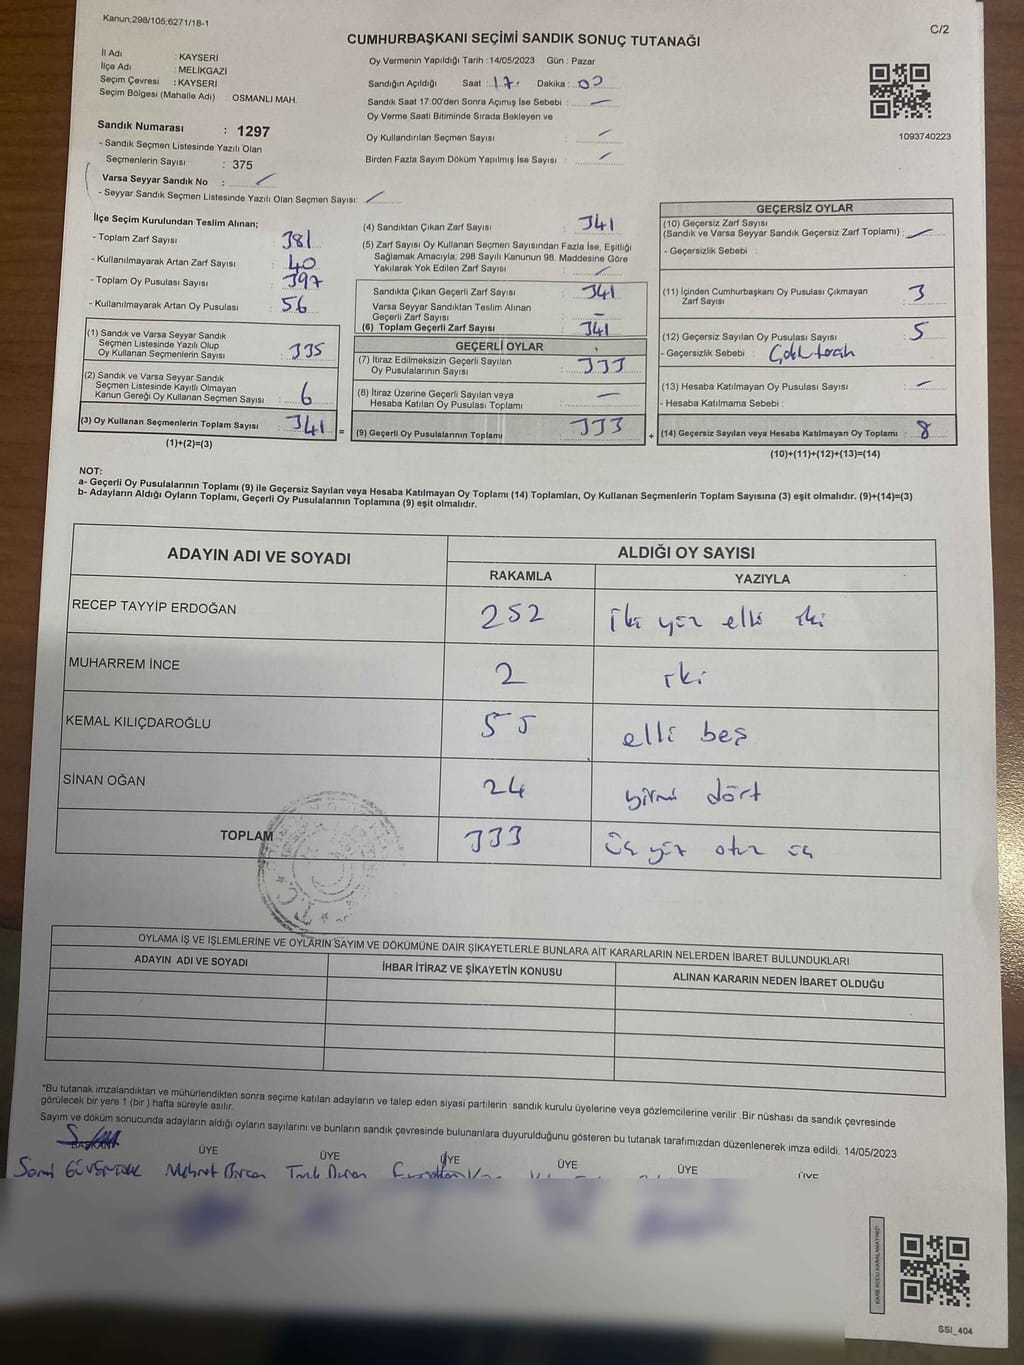 Kanun;298/105;6271/18-1
C/2
CUMHURBAŞKANI SEÇİMİ SANDIK SONUÇ TUTANAĞI
İl Adı : KAYSERİ
İlçe Adı : MELİKGAZİ
Seçim Çevresi : KAYSERİ
Seçim Bölgesi (Mahalle Adı) : OSMANLI MAH.
Sandık Numarası : 1297
- Sandık Seçmen Listesinde Yazılı Olan
Seçmenlerin Sayısı : 375
Varsa Seyyar Sandık No :
- Seyyar Sandık Seçmen Listesinde Yazılı Olan Seçmen Sayısı:
Oy Vermenin Yapıldığı Tarih : 14/05/2023 Gün : Pazar
Sandığın Açıldığı Saat : 17. Dakika : 00
Sandık Saat 17:00'den Sonra Açımış İse Sebebi : —
Oy Verme Saati Bitiminde Sırada Bekleyen ve
Oy Kullandırılan Seçmen Sayısı : —
Birden Fazla Sayım Döküm Yapılmış İse Sayısı :
1093740223
İlçe Seçim Kurulundan Teslim Alınan;
- Toplam Zarf Sayısı : 381
- Kullanılmayarak Artan Zarf Sayısı : 40
- Toplam Oy Pusulası Sayısı : 397
- Kullanılmayarak Artan Oy Pusulası : 56
(1) Sandık ve Varsa Seyyar Sandık
Seçmen Listesinde Yazılı Olup
Oy Kullanan Seçmenlerin Sayısı : 335
(2) Sandık ve Varsa Seyyar Sandık
Seçmen Listesinde Kayıtlı Olmayan
Kanun Gereği Oy Kullanan Seçmen Sayısı : 6
(3) Oy Kullanan Seçmenlerin Toplam Sayısı : 341 =
(1)+(2)=(3)
(4) Sandıktan Çıkan Zarf Sayısı : 341
(5) Zarf Sayısı Oy Kullanan Seçmen Sayısından Fazla İse, Eşitliği
Sağlamak Amacıyla; 298 Sayılı Kanunun 98. Maddesine Göre
Yakılarak Yok Edilen Zarf Sayısı :
Sandıkta Çıkan Geçerli Zarf Sayısı : 341
Varsa Seyyar Sandıktan Teslim Alınan
Geçerli Zarf Sayısı : —
(6) Toplam Geçerli Zarf Sayısı : 341
GEÇERLİ OYLAR
(7) İtiraz Edilmeksizin Geçerli Sayılan
Oy Pusulalarının Sayısı : 333
(8) İtiraz Üzerine Geçerli Sayılan veya
Hesaba Katılan Oy Pusulası Toplamı : —
(9) Geçerli Oy Pusulalarının Toplamı : 333 +
GEÇERSİZ OYLAR
(10) Geçersiz Zarf Sayısı
(Sandık ve Varsa Seyyar Sandık Geçersiz Zarf Toplamı) : —
- Geçersizlik Sebebi :
(11) İçinden Cumhurbaşkanı Oy Pusulası Çıkmayan
Zarf Sayısı : 3
(12) Geçersiz Sayılan Oy Pusulası Sayısı : 5
- Geçersizlik Sebebi :
(13) Hesaba Katılmayan Oy Pusulası Sayısı : —
- Hesaba Katılmama Sebebi :
(14) Geçersiz Sayılan veya Hesaba Katılmayan Oy Toplamı : 8
(10)+(11)+(12)+(13)=(14)
NOT:
a- Geçerli Oy Pusulalarının Toplamı (9) ile Geçersiz Sayılan veya Hesaba Katılmayan Oy Toplamı (14) Toplamları, Oy Kullanan Seçmenlerin Toplam Sayısına (3) eşit olmalıdır. (9)+(14)=(3)
b- Adayların Aldığı Oyların Toplamı, Geçerli Oy Pusulalarının Toplamına (9) eşit olmalıdır.
ADAYIN ADI VE SOYADI
ALDIĞI OY SAYISI
RAKAMLA YAZIYLA
RECEP TAYYİP ERDOĞAN 252 iki yüz elli iki
MUHARREM İNCE 2 iki
KEMAL KILIÇDAROĞLU 55 elli beş
SİNAN OĞAN 24 yirmi dört
TOPLAM 333 üç yüz otuz üç
T.C.
OYLAMA İŞ VE İŞLEMLERİNE VE OYLARIN SAYIM VE DÖKÜMÜNE DAİR ŞİKAYETLERLE BUNLARA AİT KARARLARIN NELERDEN İBARET BULUNDUKLARI
ADAYIN ADI VE SOYADI İHBAR İTİRAZ VE ŞİKAYETİN KONUSU ALINAN KARARIN NEDEN İBARET OLDUĞU
*Bu tutanak imzalandıktan ve mühürlendikten sonra seçime katılan adayların ve talep eden siyasi partilerin sandık kurulu üyelerine veya gözlemcilerine verilir .Bir nüshası da sandık çevresinde
görülecek bir yere 1 (bir ) hafta süreyle asılır.
Sayım ve döküm sonucunda adayların aldığı oyların sayılarını ve bunların sandık çevresinde bulunanlara duyurulduğunu gösteren bu tutanak tarafımızdan düzenlenerek imza edildi. 14/05/2023
BAŞKAN ÜYE ÜYE ÜYE ÜYE ÜYE ÜYE
Mehmet
SSI_404